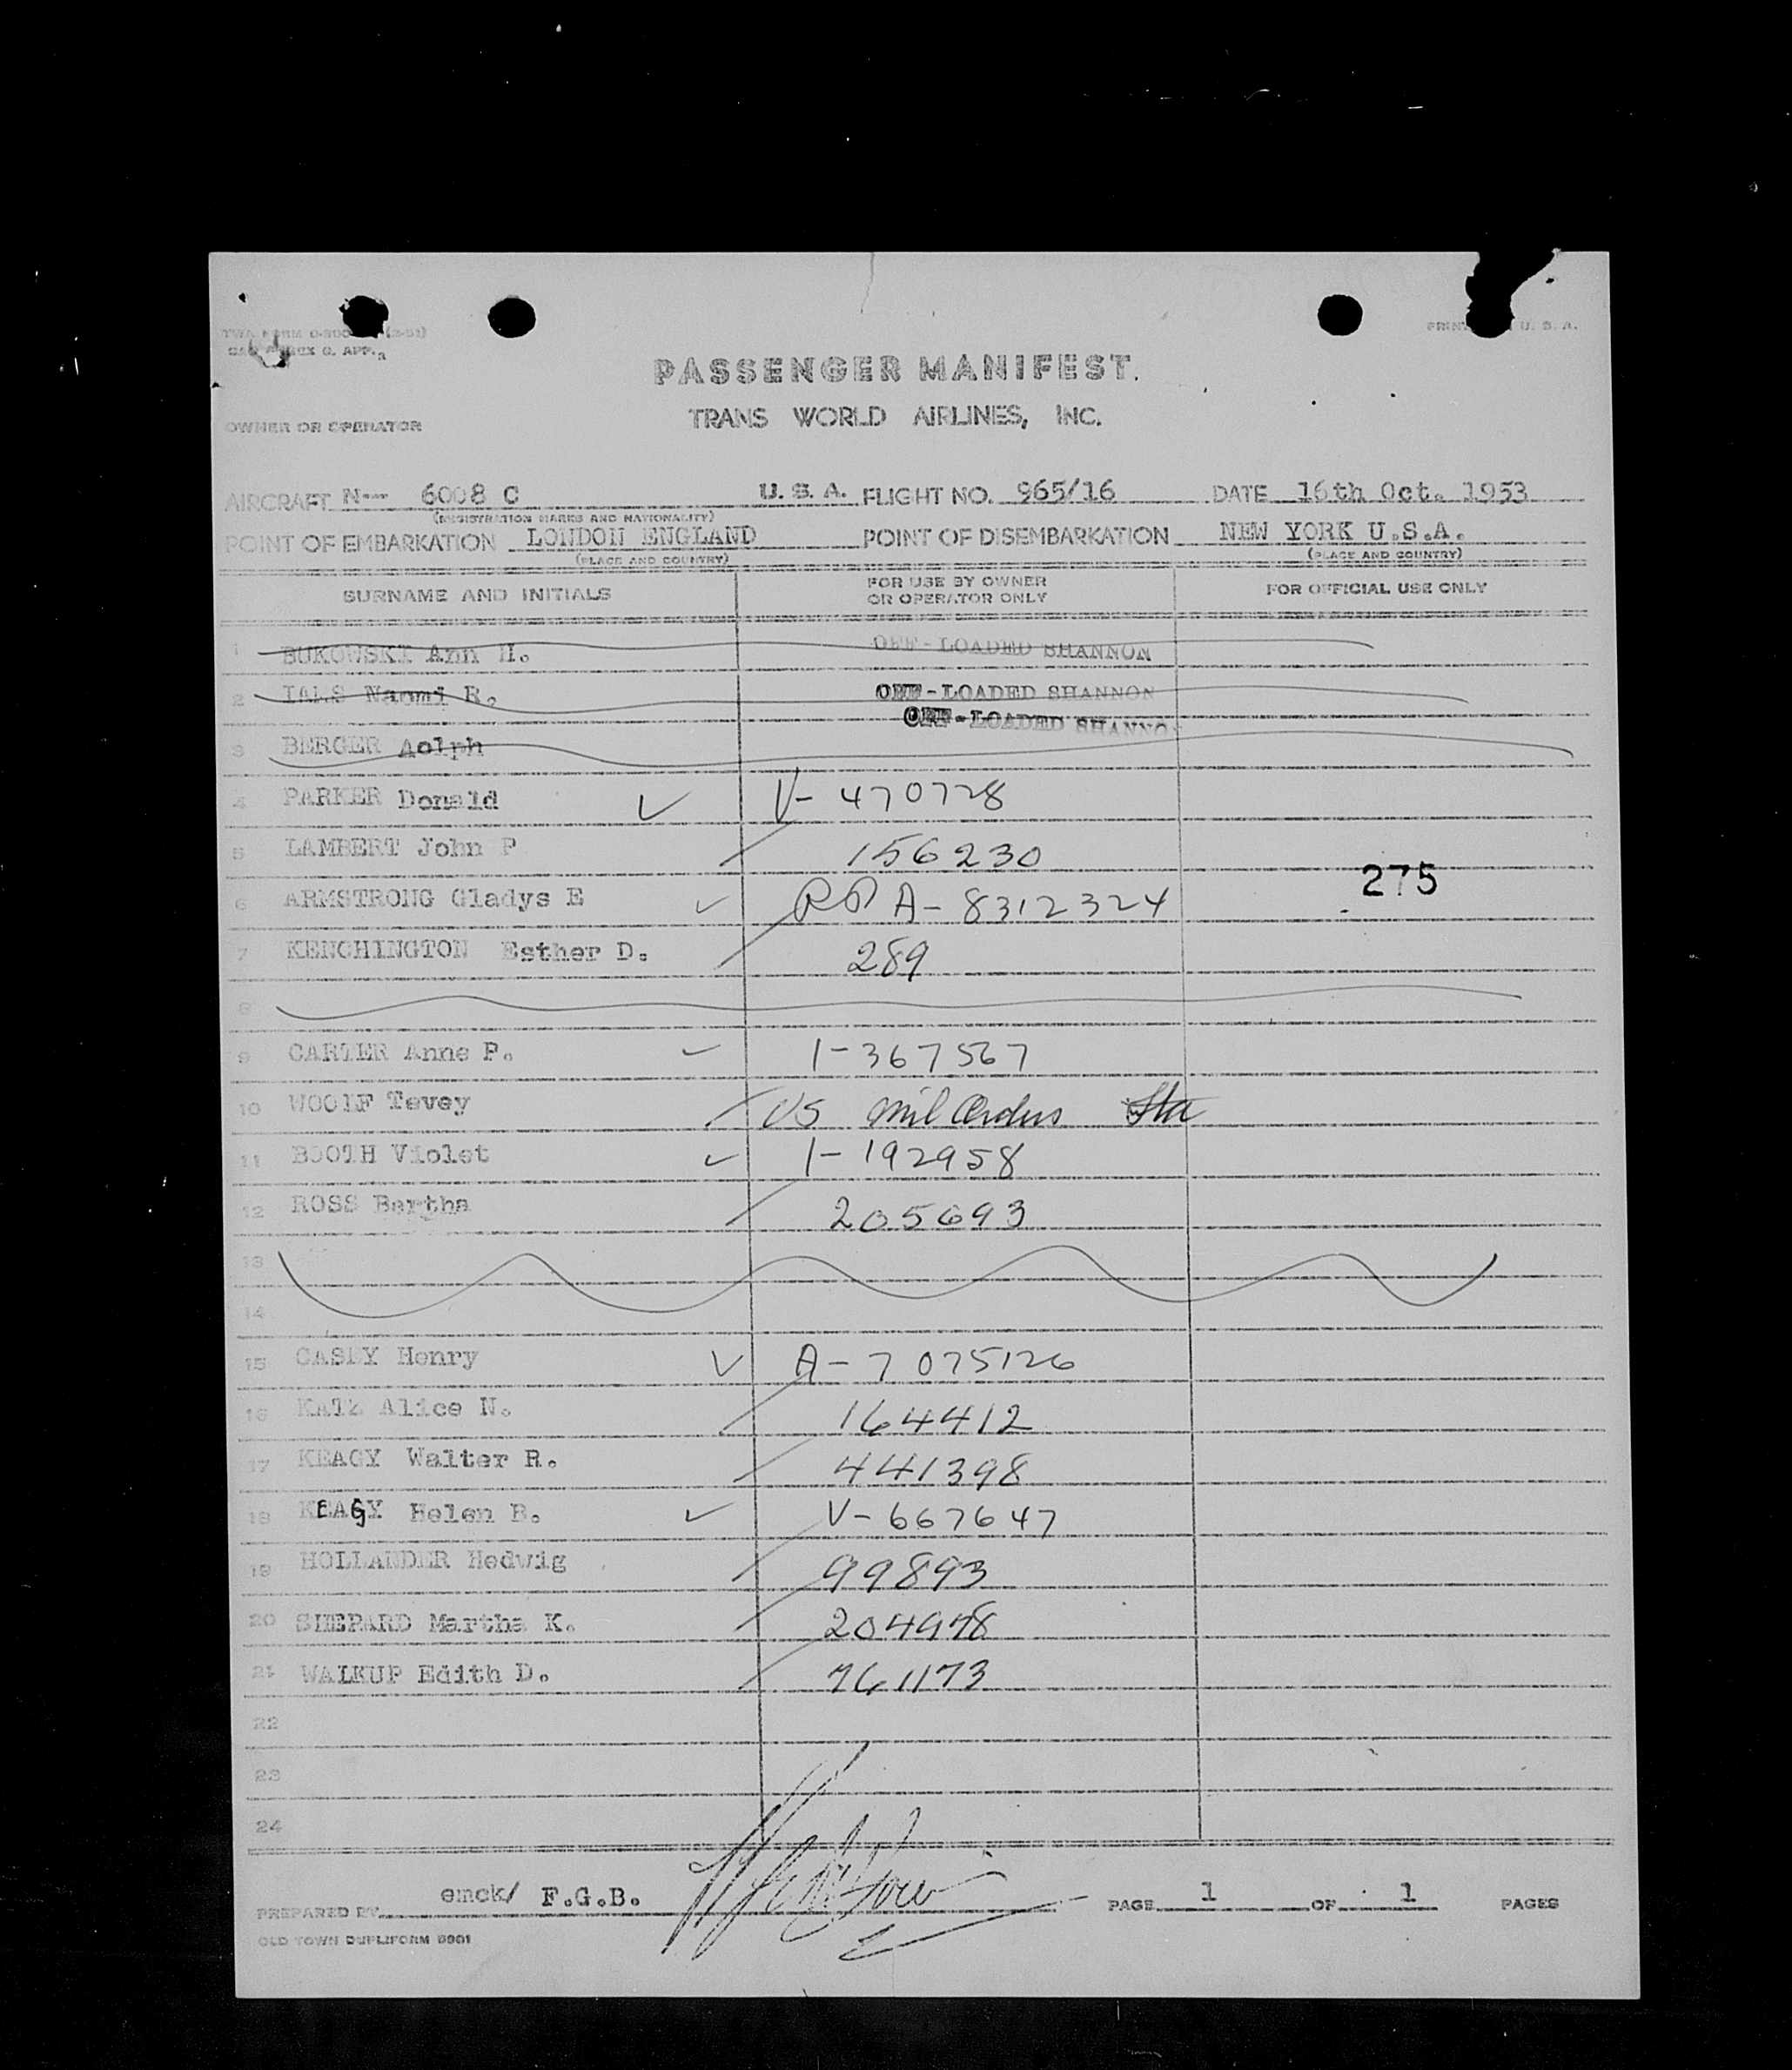 PRINT U. S. A.
PASSENGER MANIFEST.
TRANS WORLD AIRLINES, INC.
OWNER OR OPERATOR
AIRCRAFT N--- 6008 C U. S. A. FLIGHT NO. 965/16 DATE 16th Oct. 1953
(REGISTRATION MARKS AND NATIONALITY)
POINT OF EMBARKATION LONDON ENGLAND POINT OF DISEMBARKATION NEW YORK U.S.A.
(PLACE AND COUNTRY) (PLACE AND COUNTRY)
SURNAME AND INITIALS FOR USE BY OWNER OR OPERATOR ONLY FOR OFFICIAL USE ONLY
1 BUKOWSKI Ann H. OFF-LOADED SHANNON
2 IALS Naomi R. OFF-LOADED SHANNON
OFF-LOADED SHANNON
3 BERGER Aolph
4 PARKER Donald V- 470728
5 LAMBERT John P 156230
275
6 ARMSTRONG Gladys E A- 8312324
7 KENCHINGTON Esther D. 289
8
9 CARTER Anne P. 1-367567
10 WOOLF Tevey US mil Orders
11 BOOTH Violet 1-192958
12 ROSS Bertha 205693
13
14
15 CASEY Henry A-7075126
16 KATZ Alice N. 164412
17 KEAGY Walter R. 441398
18 KEAGY Helen B. V-667647
19 HOLLANDER Hedwig 99893
20 SHEPARD Martha K. 204978
21 WALKUP Edith D. 761173
22
23
24
PREPARED BY emck/ F.G.B. PAGE 1 OF 1 PAGES
OLD TOWN DUPLIFORM 9901